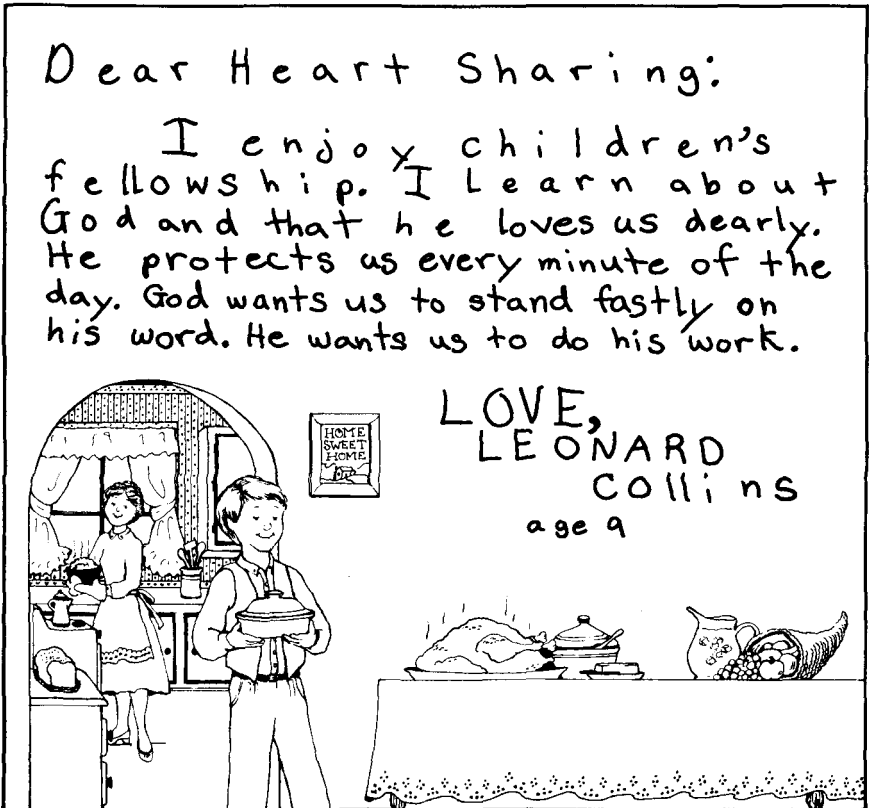 Dear Heart Sharing:
I enjoy children's
fellowship. I Learn about
God and that he loves us dearly.
He protects us every minute of the
day. God wants us to stand fastly on
his word. He wants us to do his work.
LOVE,
LEONARD
Collins
age 9
HOME
SWEET
HOME